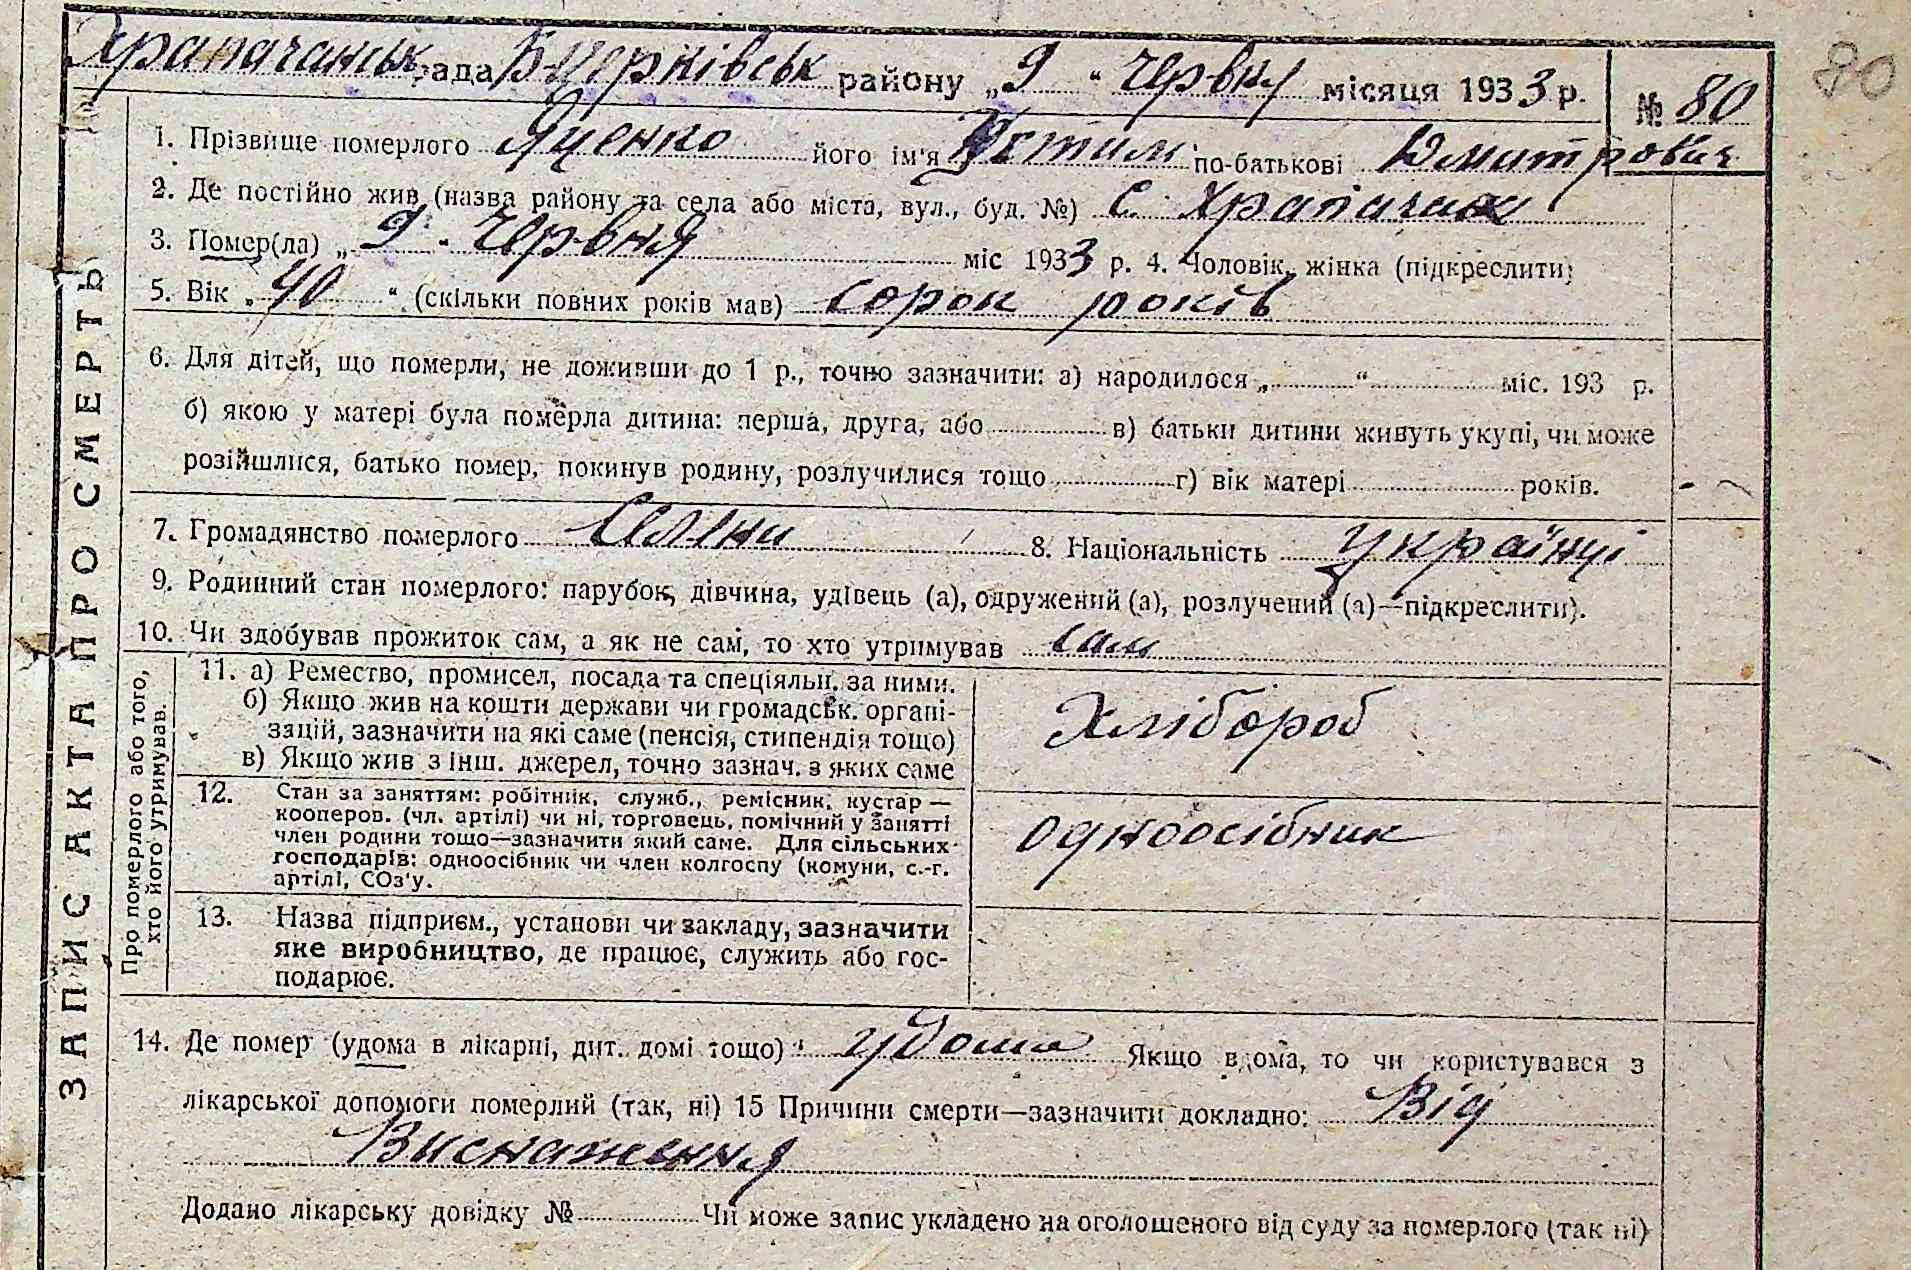 Храпачанськ рада Б-церківськ району „ 9 " червня місяця 1933 р. № 80
80
ЗАПИС АКТА ПРО СМЕРТЬ
1. Прізвище померлого Яценко його ім'я Устим по-батькові Дмитрович
2. Де постійно жив (назва району та села або міста, вул., буд. №) С. Храпачах
3. Помер(ла) „ 9 " червня міс 1933 р. 4. Чоловік, жінка (підкреслити)
5. Вік „ 40 " (скільки повних років мав) сорок років
6. Для дітей, що померли, не доживши до 1 р., точно зазначити: а) народилося „ " міс. 193 р.
б) якою у матері була померла дитина: перша, друга, або в) батьки дитини живуть укупі, чи може
розійшлися, батько помер, покинув родину, розлучилися тощо г) вік матері років.
7. Громадянство померлого Селяни 8. Національність Українці
9. Родинний стан померлого: парубок, дівчина, удівець (а), одружений (а), розлучений (а)—підкреслити).
10. Чи здобував прожиток сам, а як не сам, то хто утримував сам
Про померлого або того,
хто його утримував.
11. а) Ремество, промисел, посада та спеціяльн. за ними.
б) Якщо жив на кошти держави чи громадськ. органі-
зацій, зазначити на які саме (пенсія, стипендія тощо)
в) Якщо жив з інш. джерел, точно зазнач. з яких саме
Хлібороб
12. Стан за заняттям: робітник, служб., ремісник, кустар —
кооперов. (чл. артілі) чи ні, торговець, помічний у занятті
член родини тощо—зазначити який саме. Для сільських
господарів: одноосібник чи член колгоспу (комуни, с.-г.
артілі, СОз'у.
одноосібник
13. Назва підприєм., установи чи закладу, зазначити
яке виробництво, де працює, служить або гос-
подарює.
14. Де помер (удома в лікарні, дит. домі тощо) удома Якщо вдома, то чи користувався з
лікарської допомоги померлий (так, ні) 15 Причини смерти—зазначити докладно: Від
Виснаження
Додано лікарську довідку № Чи може запис укладено на оголошеного від суду за померлого (так ні)